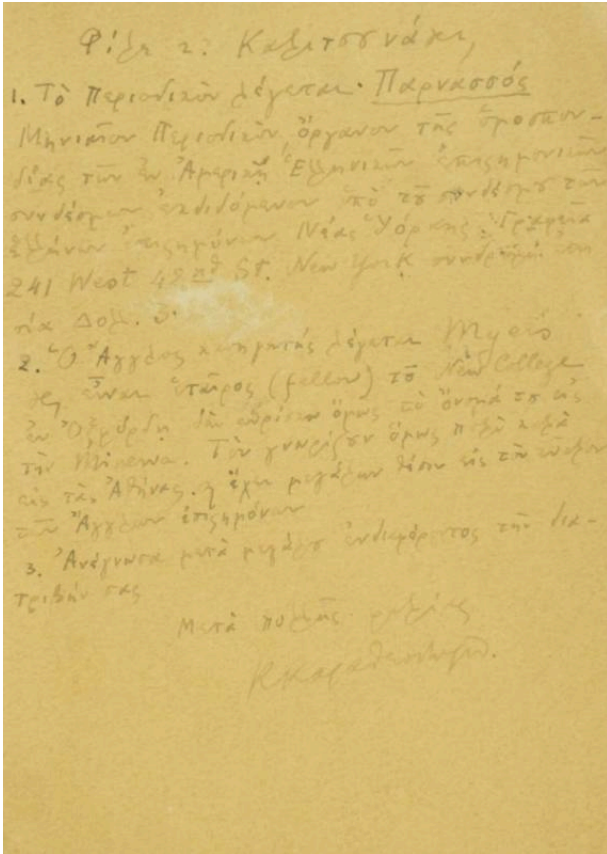 Φίλε κ. Καλιτσουνάκι,
1. Τὸ Περιοδικὸν λέγεται· Παρνασσός
Μηνιαῖον Περιοδικόν, ὄργανον τῆς ὁμοσπον-
δίας τῶν ἐν Ἀμερικῇ Ἑλληνικῶν ἐπιστημονικῶν
συνδέσμων ἐκδιδόμενον ὑπὸ τοῦ συνδέσμου τῶν
Ἑλλήνων ἐπιστημόνων Νέας Ὑόρκης. Γραφεῖα
241 West 42nd St. New York συνδρομὴ ἐτη-
σία Δολ. 3.
2. Ὁ Ἄγγλος καθηγητὴς λέγεται Myres
εἶναι ἑταῖρος (fellow) τοῦ New College
ἐν Ὀξφόρδῃ δὲν εὑρίσκω ὅμως τὸ ὄνομά του εἰς
τὴν Minerva. Τὸν γνωρίζουν ὅμως πολὺ καλὰ
εἰς τὰς Ἀθήνας. ἔχει μεγάλην θέσιν εἰς τὴν
τῶν Ἄγγλων ἐπιστημόνων
3. Ἀνέγνωσα μετὰ μεγάλου ἐνδιαφέροντος τὴν δια-
τριβήν σας
Μετὰ πολλῆς φιλίας
Κ Καραθεοδωρῆ.